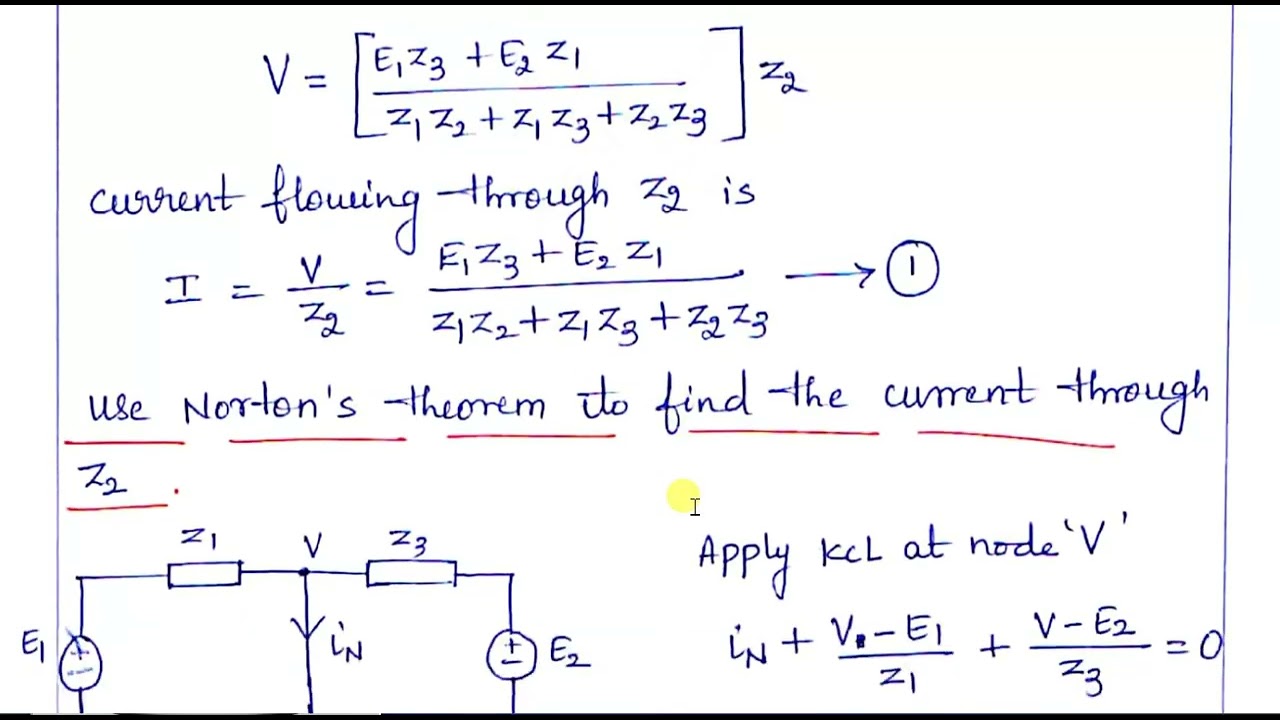 V = [E₁Z₃ + E₂Z₁ / Z₁Z₂ + Z₁Z₃ + Z₂Z₃] Z₂
current flowing through Z₂ is
I = V/Z₂ = E₁Z₃ + E₂Z₁ / Z₁Z₂ + Z₁Z₃ + Z₂Z₃ → ①
use Norton's theorem to find the current through
Z₂.
Z₁ V Z₃
Apply KCL at node 'V'
E₁ + - iN ± E₂
iN + V - E₁ / Z₁ + V - E₂ / Z₃ = 0